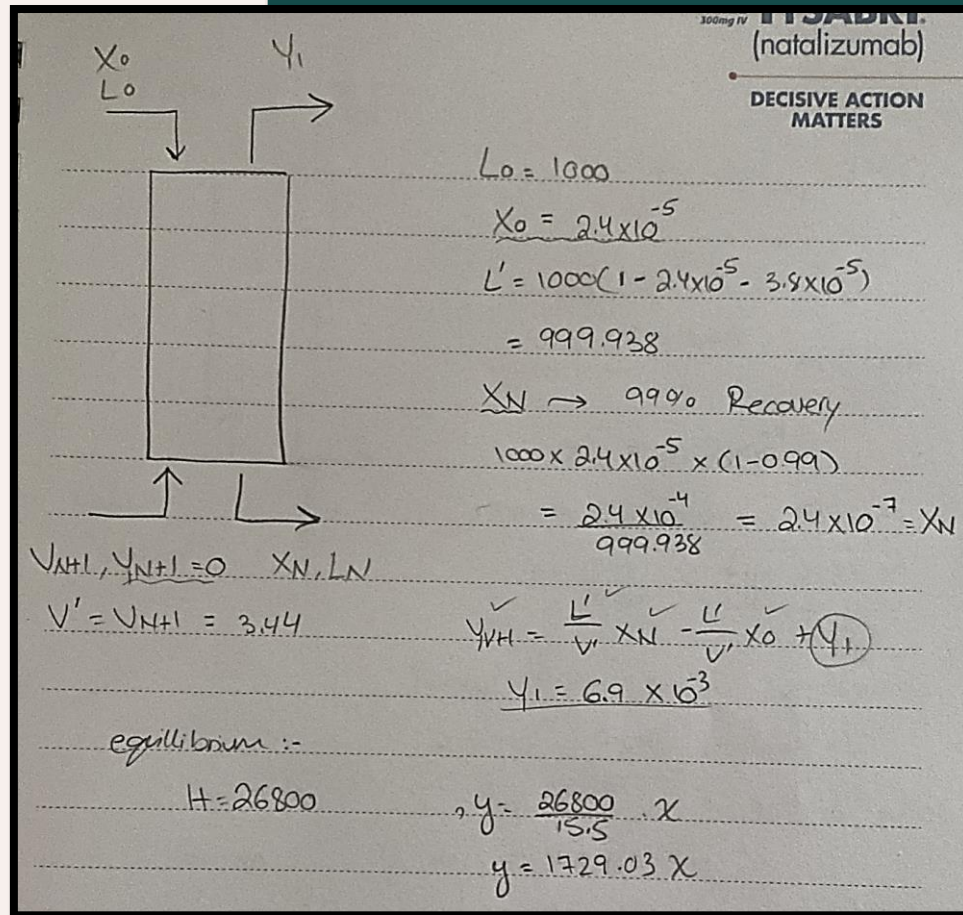 300mg IV TYSABRI.
(natalizumab)
DECISIVE ACTION
MATTERS
X₀ Y₁
L₀
L₀ = 1000
X₀ = 2.4x10⁻⁵
L' = 1000(1 - 2.4x10⁻⁵ - 3.8x10⁻⁵)
= 999.938
X_N → 99% Recovery
1000 x 2.4x10⁻⁵ x (1-0.99)
= 2.4x10⁻⁴ / 999.938 = 2.4x10⁻⁷ = X_N
V_N+1, Y_N+1 = 0 X_N, L_N
V' = V_N+1 = 3.44
Y_N+1 = L'/V' X_N - L'/V' X₀ + Y₁
Y₁ = 6.9 x 10⁻³
equillibrium :-
H = 26800 , y = 26800/15.5 . x
y = 1729.03 x